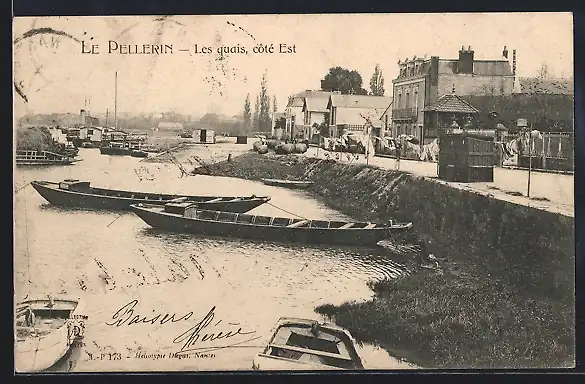 LE PELLERIN — Les quais, côté Est
Baisers Thérèse
L.-P 173 - Héliotypie Dugas, Nantes